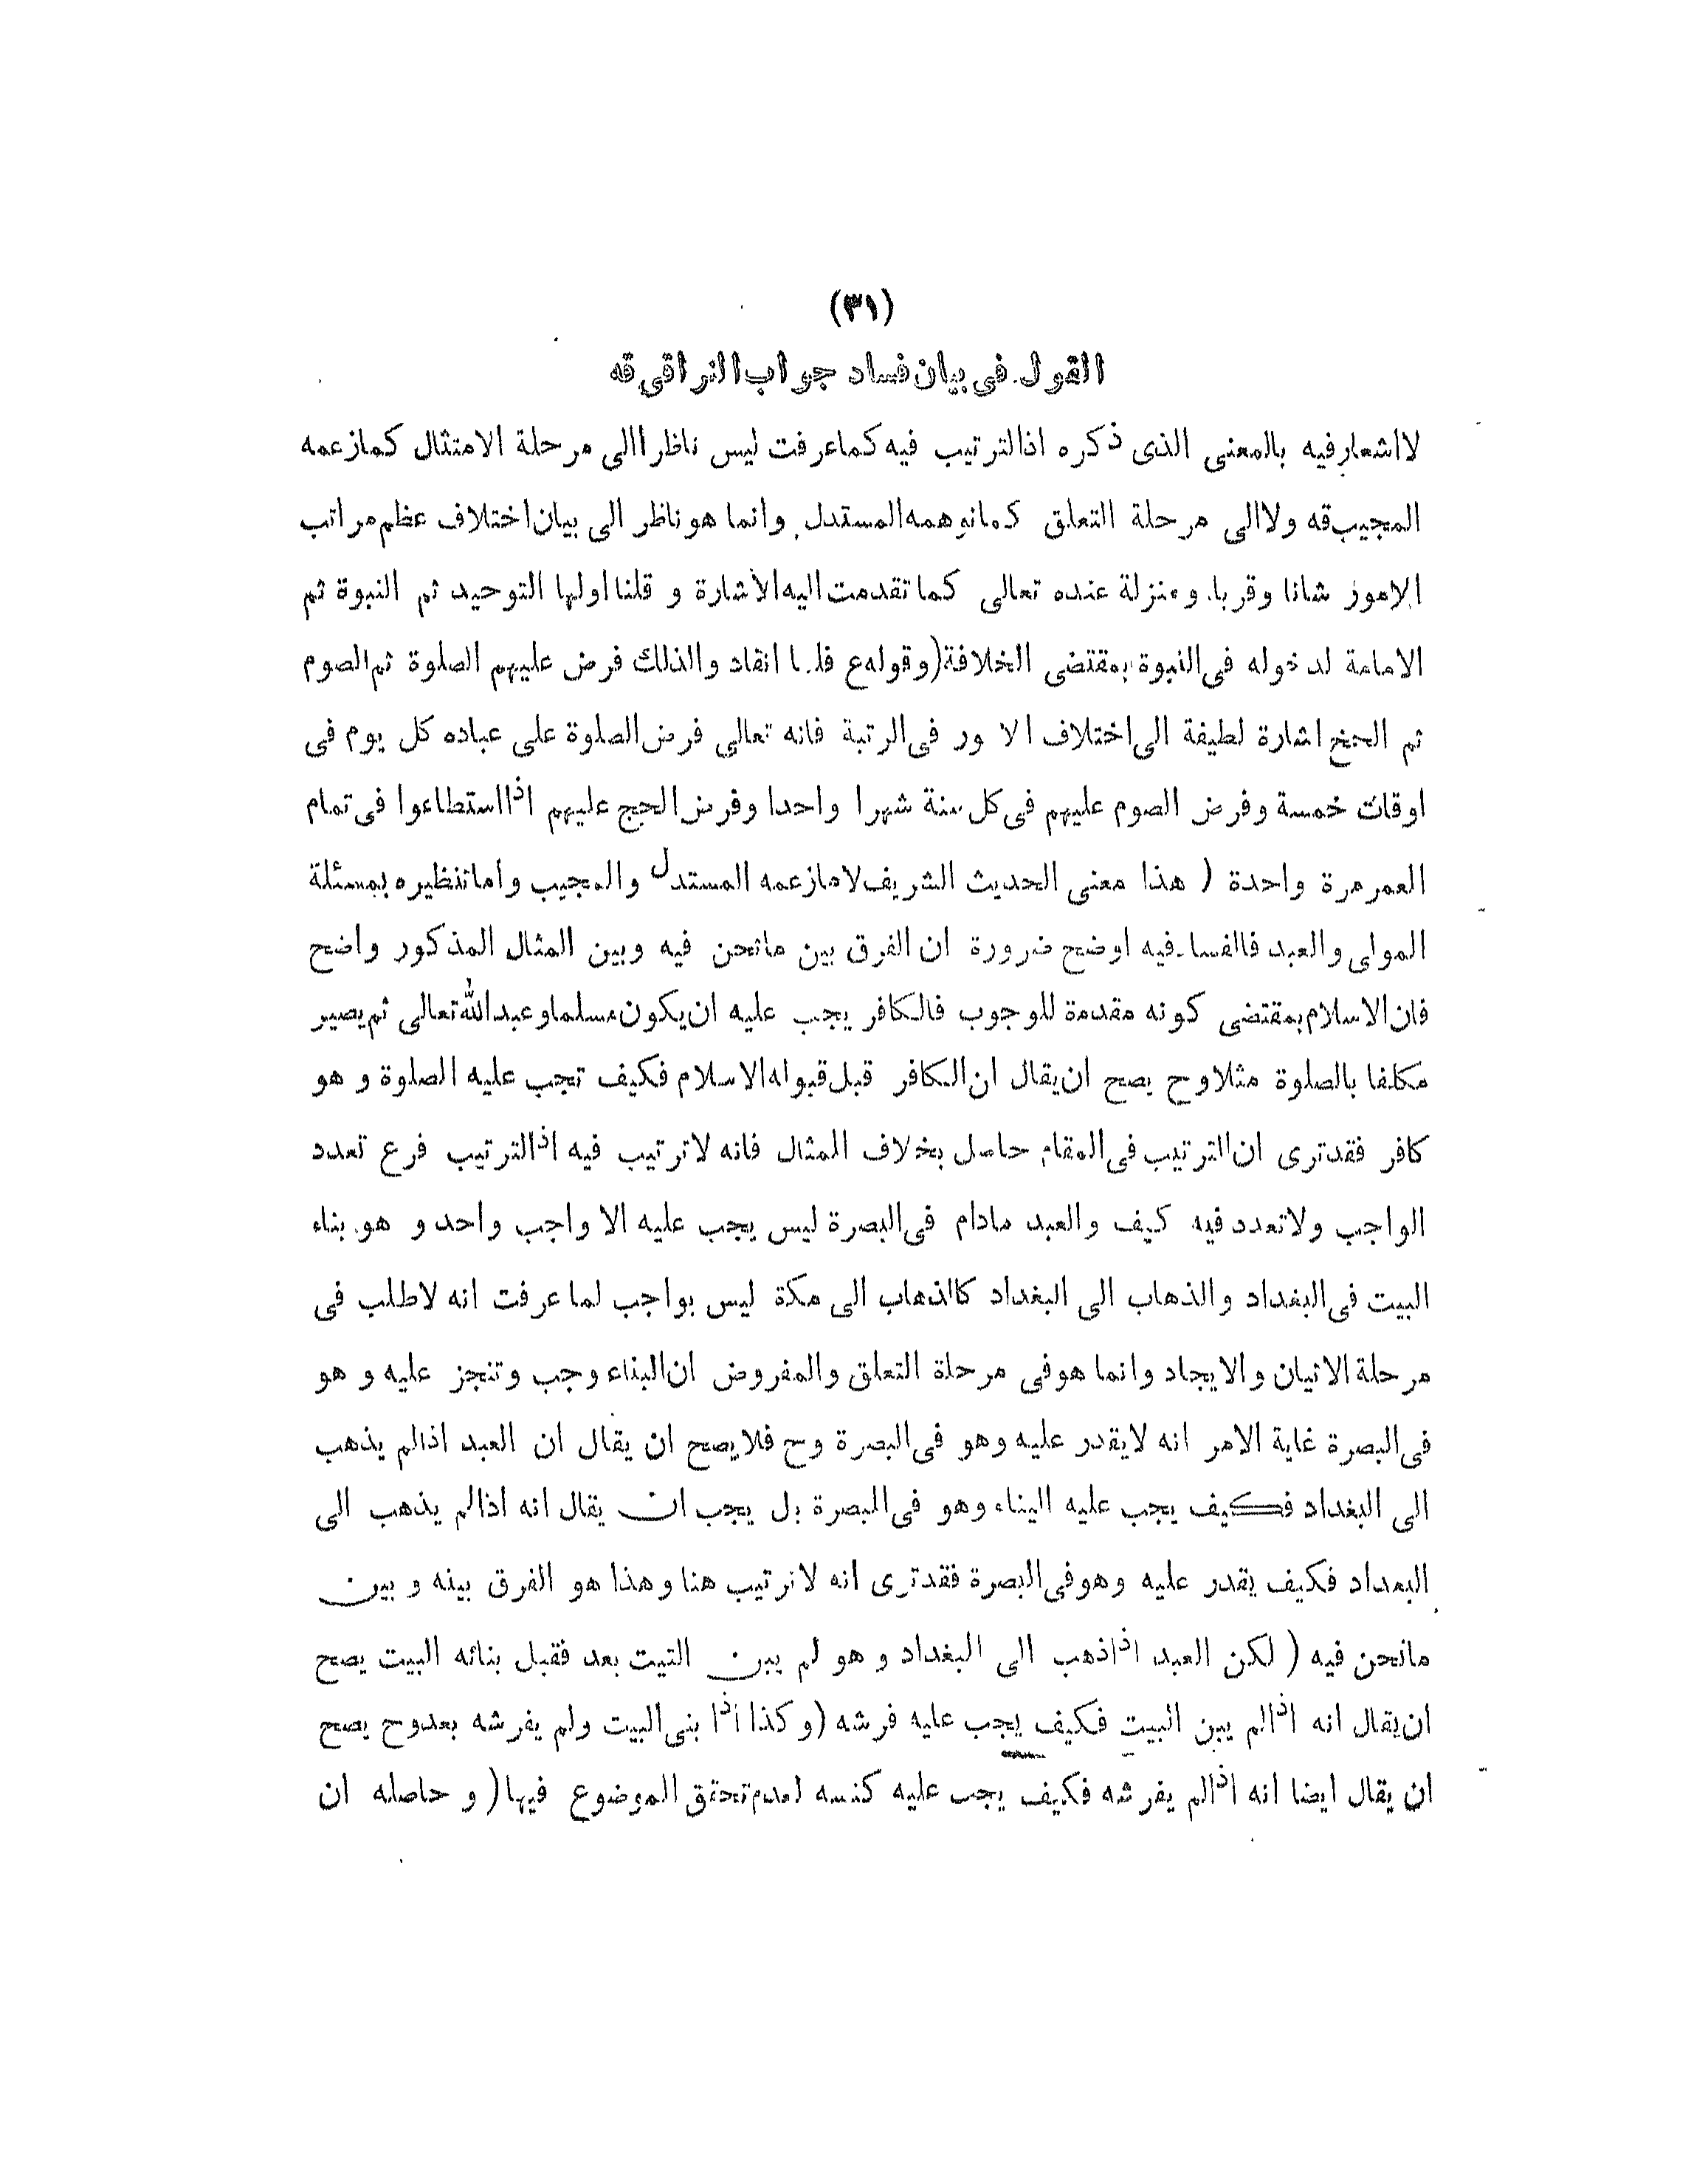 (٣١)
القول فى بيان فساد جواب النراقى قه
لا اشعار فيه بالمعنى الذى ذكره اذ الترتيب فيه كما عرفت ليس ناظرا الى مرحلة الامتثال كما زعمه
المجيب قه ولا الى مرحلة التعلق كما توهمه المستدل وانما هو ناظر الى بيان اختلاف عظم مراتب
الامور شانا وقربا ومنزلة عنده تعالى كما تقدمت اليه الاشارة و قلنا اولها التوحيد ثم النبوة ثم
الامامة لدخوله فى النبوة بمقتضى الخلافة (وقوله ع فلما انقاد والذلك فرض عليهم الصلوة ثم الصوم
ثم الحج اشارة لطيفة الى اختلاف الامور فى الرتبة فانه تعالى فرض الصلوة على عباده كل يوم فى
اوقات خمسة وفرض الصوم عليهم فى كل سنة شهرا واحدا وفرض الحج عليهم اذا استطاعوا فى تمام
العمر مرة واحدة ( هذا معنى الحديث الشريف لا ما زعمه المستدل والمجيب واما تنظيره بمسئلة
المولى والعبد فالفساد فيه اوضح ضرورة ان الفرق بين مانحن فيه وبين المثال المذكور واضح
فان الاسلام بمقتضى كونه مقدمة للوجوب فالكافر يجب عليه ان يكون مسلما وعبد الله تعالى ثم يصير
مكلفا بالصلوة مثلا وح يصح ان يقال ان الكافر قبل قبوله الاسلام فكيف تجب عليه الصلوة و هو
كافر فقد ترى ان الترتيب فى المقام حاصل بخلاف المثال فانه لا ترتيب فيه اذ الترتيب فرع تعدد
الواجب ولا تعدد فيه كيف والعبد مادام فى البصرة ليس يجب عليه الا واجب واحد و هو بناء
البيت فى البغداد والذهاب الى البغداد كالذهاب الى مكة ليس بواجب لما عرفت انه لا طلب فى
مرحلة الاتيان والايجاد وانما هو فى مرحلة التعلق والمفروض ان البناء وجب وتنجز عليه و هو
فى البصرة غاية الامر انه لا يقدر عليه وهو فى البصرة وح فلا يصح ان يقال ان العبد اذا لم يذهب
الى البغداد فكيف يجب عليه البناء وهو فى البصرة بل يجب ان يقال انه اذا لم يذهب الى
البغداد فكيف يقدر عليه وهو فى البصرة فقد ترى انه لا ترتيب هنا وهذا هو الفرق بينه و بين
مانحن فيه ( لكن العبد اذا ذهب الى البغداد و هو لم يبن البيت بعد فقبل بنائه البيت يصح
ان يقال انه اذا لم يبن البيت فكيف يجب عليه فرشه (و كذا اذا بنى البيت ولم يفرشه بعد وح يصح
ان يقال ايضا انه اذا لم يفرشه فكيف يجب عليه كنسه لعدم تحقق الموضوع فيها ( و حاصله ان